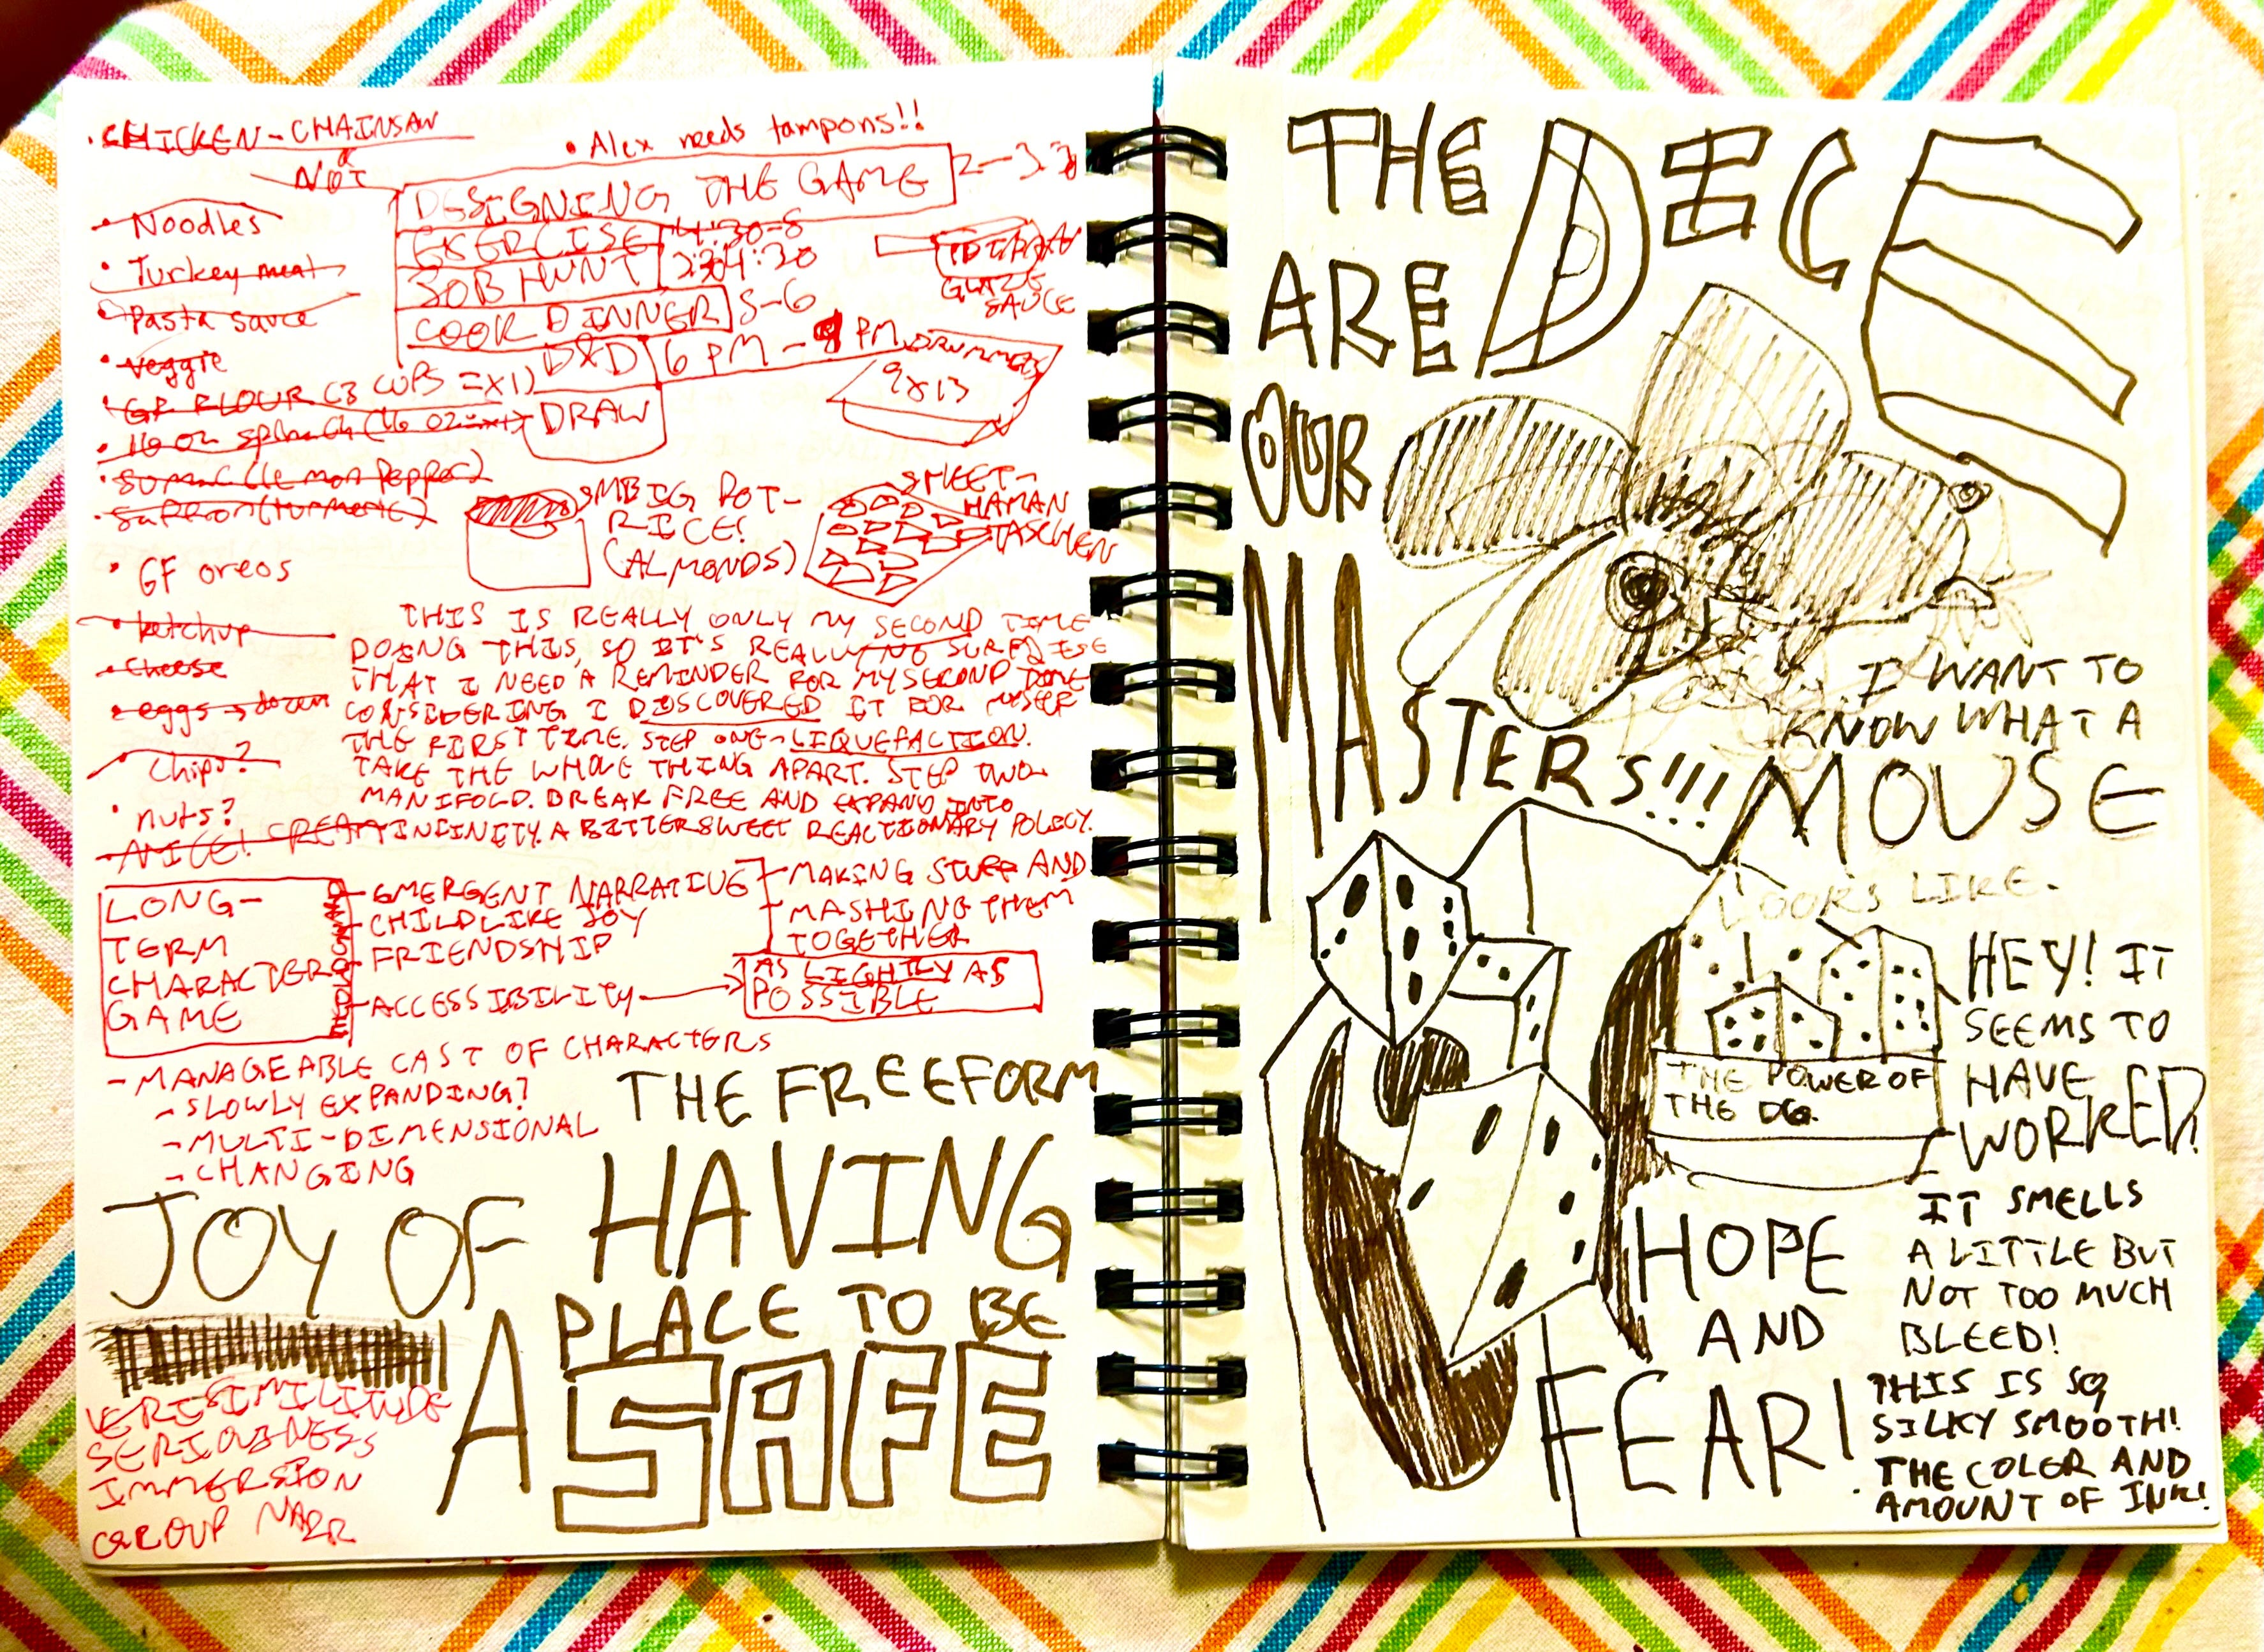 • CHICKEN - CHAINSAW
NOT
• Alex needs tampons!!
DESIGNING THE GAME
EXERCISE 4:30-5
JOB HUNT
COOK DINNER 5-6
D&D 6 PM - PM
DRAW
• Noodles
• Turkey meat
• Pasta sauce
• veggie
• GF FLOUR (3 CUPS = X1)
• 16 oz spinach (16 oz = x1)
• sumac (lemon pepper)
• saffron (turmeric)
• GF oreos
• ketchup
• cheese
• eggs → dozen
• chips?
• nuts?
GLAZE
SAUCE
DRUMMIES
9x13
BIG POT -
RICE!
(ALMONDS)
MEET -
HAMAN
TASCHEN
THIS IS REALLY ONLY MY SECOND TIME
DOING THIS, SO IT'S REALLY NO SURPRISE
THAT I NEED A REMINDER FOR MY SECOND TIME
CONSIDERING I DISCOVERED IT FOR MYSELF
THE FIRST TIME. STEP ONE - LIQUEFACTION.
TAKE THE WHOLE THING APART. STEP TWO -
MANIFOLD. BREAK FREE AND EXPAND INTO
INFINITY. A BITTERSWEET REACTIONARY POLICY.
LONG-
TERM
CHARACTER
GAME
EMERGENT NARRATIVE
CHILDLIKE JOY
FRIENDSHIP
ACCESSIBILITY
- MAKING STUFF AND
- MASHING THEM
TOGETHER
AS LIGHTLY AS
POSSIBLE
- MANAGEABLE CAST OF CHARACTERS
- SLOWLY EXPANDING?
- MULTI-DIMENSIONAL
- CHANGING
THE FREEFORM
JOY OF HAVING
A PLACE TO BE
SAFE
VERISIMILITUDE
SERIOUSNESS
IMMERSION
GROUP NARR
THE DICE
ARE
OUR
MASTERS!!!
I WANT TO
KNOW WHAT A
MOUSE
LOOKS LIKE.
HEY! IT
SEEMS TO
HAVE
WORKED!
THE POWER OF
THE D6.
HOPE
AND
FEAR!
IT SMELLS
A LITTLE BUT
NOT TOO MUCH
BLEED!
THIS IS SO
SILKY SMOOTH!
THE COLOR AND
AMOUNT OF INK!